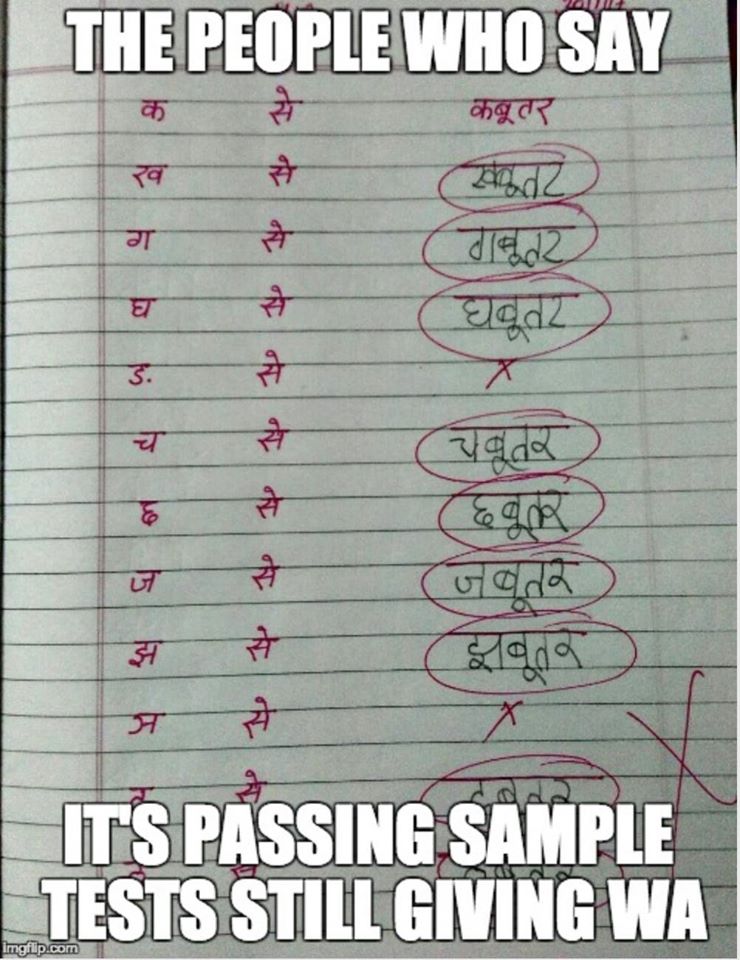 THE PEOPLE WHO SAY
क से कबूतर
ख से खबूतर
ग से गबूतर
घ से घबूतर
ङ से x
च से चबूतर
छ से छबूतर
ज से जबूतर
झ से झबूतर
ञ से x
से
IT'S PASSING SAMPLE
TESTS STILL GIVING WA
imgflip.com